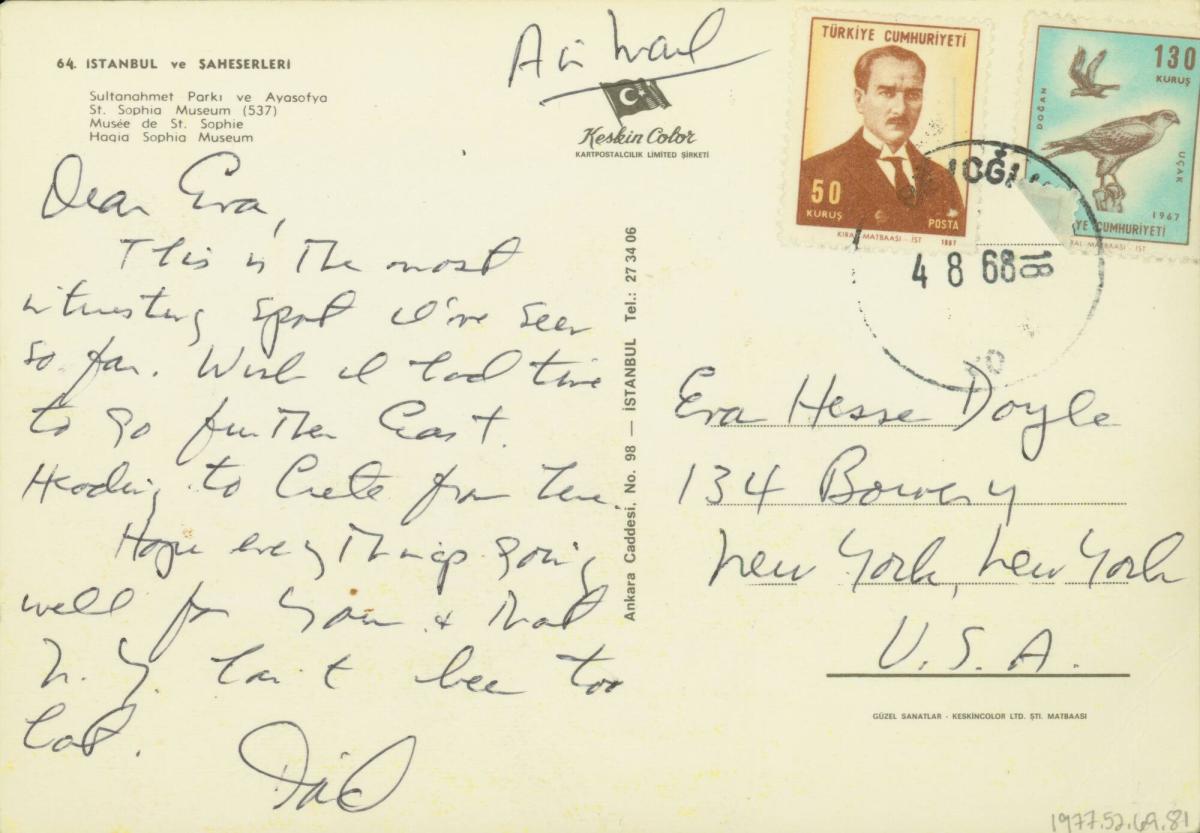 64. İSTANBUL ve ŞAHESERLERİ
Sultanahmet Parkı ve Ayasofya
St. Sophia Museum (537)
Musée de St. Sophie
Hagia Sophia Museum
Air Mail
Keskin Color
KARTPOSTALCILIK LİMİTED ŞİRKETİ
TÜRKİYE CUMHURİYETİ
50
KURUŞ
POSTA
KIRAL MATBAASI - İST 1967
130
KURUŞ
DOĞAN
UÇAK
1967
YE CUMHURİYETİ
RAL MATBAASI - İST
4 8 68 18
Dear Eva,
This is the most
interesting spot I've seen
so far. Wish I had time
to go further East.
Heading to Crete from here.
Hope everything's going
well for you & that
N.Y. hasn't been too
hot.
Ankara Caddesi, No. 98 — İSTANBUL Tel.: 27 34 06
Eva Hesse Doyle
134 Bowery
New York, New York
U.S.A.
GÜZEL SANATLAR - KESKİNCOLOR LTD. ŞTİ. MATBAASI
1977.52.69.81